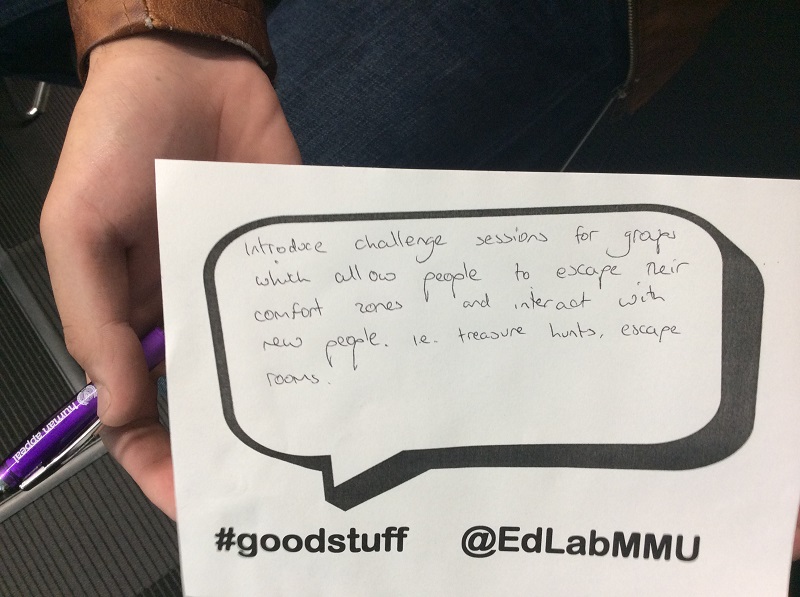 Introduce challenge sessions for groups
which allow people to escape their
comfort zones and interact with
new people. i.e. treasure hunts, escape
rooms.
#goodstuff @EdLabMMU
human appeal